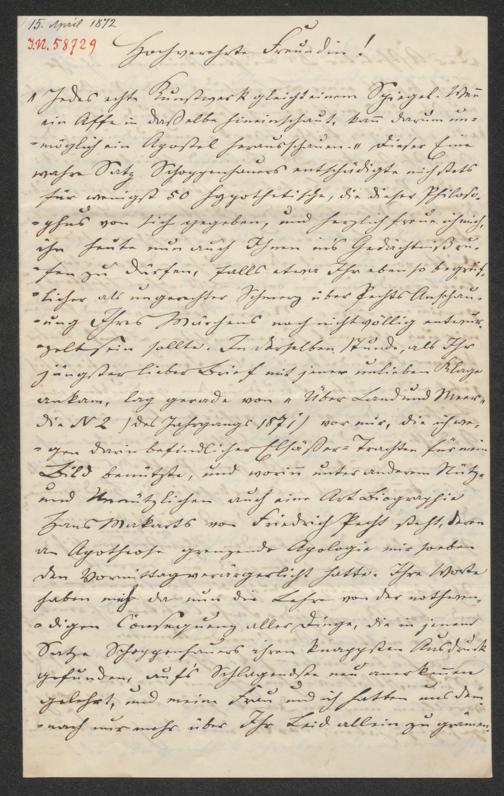 15. April 1872
I.N. 58729
Hochverehrte Freundin!
"Jedes echte Kunstwerk gleicht einem Spiegel. Wenn
ein Affe in dasselbe hineinschaut, kann darum un-
möglich ein Apostel herausschauen." Dieser Eine
wahre Satz Schoppenhauers entschädigte mich stets
für wenigst 50 hypothetische, die dieser Philoso-
phus von sich gegeben, und herzlich freue ich mich,
ihn heute nun auch Ihnen ins Gedächtniß ru-
fen zu dürfen, falls etwa Ihr eben so begreif-
licher als ungerechter Schmerz über Pechts Anschau-
ung Ihres Märchens noch nicht völlig entwur-
zelt sein sollte. In derselben Stunde, als Ihr
jüngster lieber Brief mit jener unlieben Klage
ankam, lag gerade von "Über Land und Meer"
die N 2 (des Jahrgangs 1871) vor mir, die ich we-
gen darin befindlicher Elsäßer-Trachten für mein
Bild benützte, und worin unter anderem Nütz-
und Unnützlichen auch eine Art Biographie
Hans Makarts von Friedrich Pecht steht, deren
an Apotheose grenzende Apologie mir soeben
den Vormittag verärgerlicht hatte. Ihre Worte
haben mich da nun die Lehre von der nothwen-
digen Consequenz aller Dinge, die in jenem
Satze Schoppenhauers ihren knappsten Ausdruck
gefunden, auf's Schlagendste neu anerkennen
gelehrt, und meine Frau und ich hatten uns dem-
nach nur mehr über Ihr Leid allein zu grämen